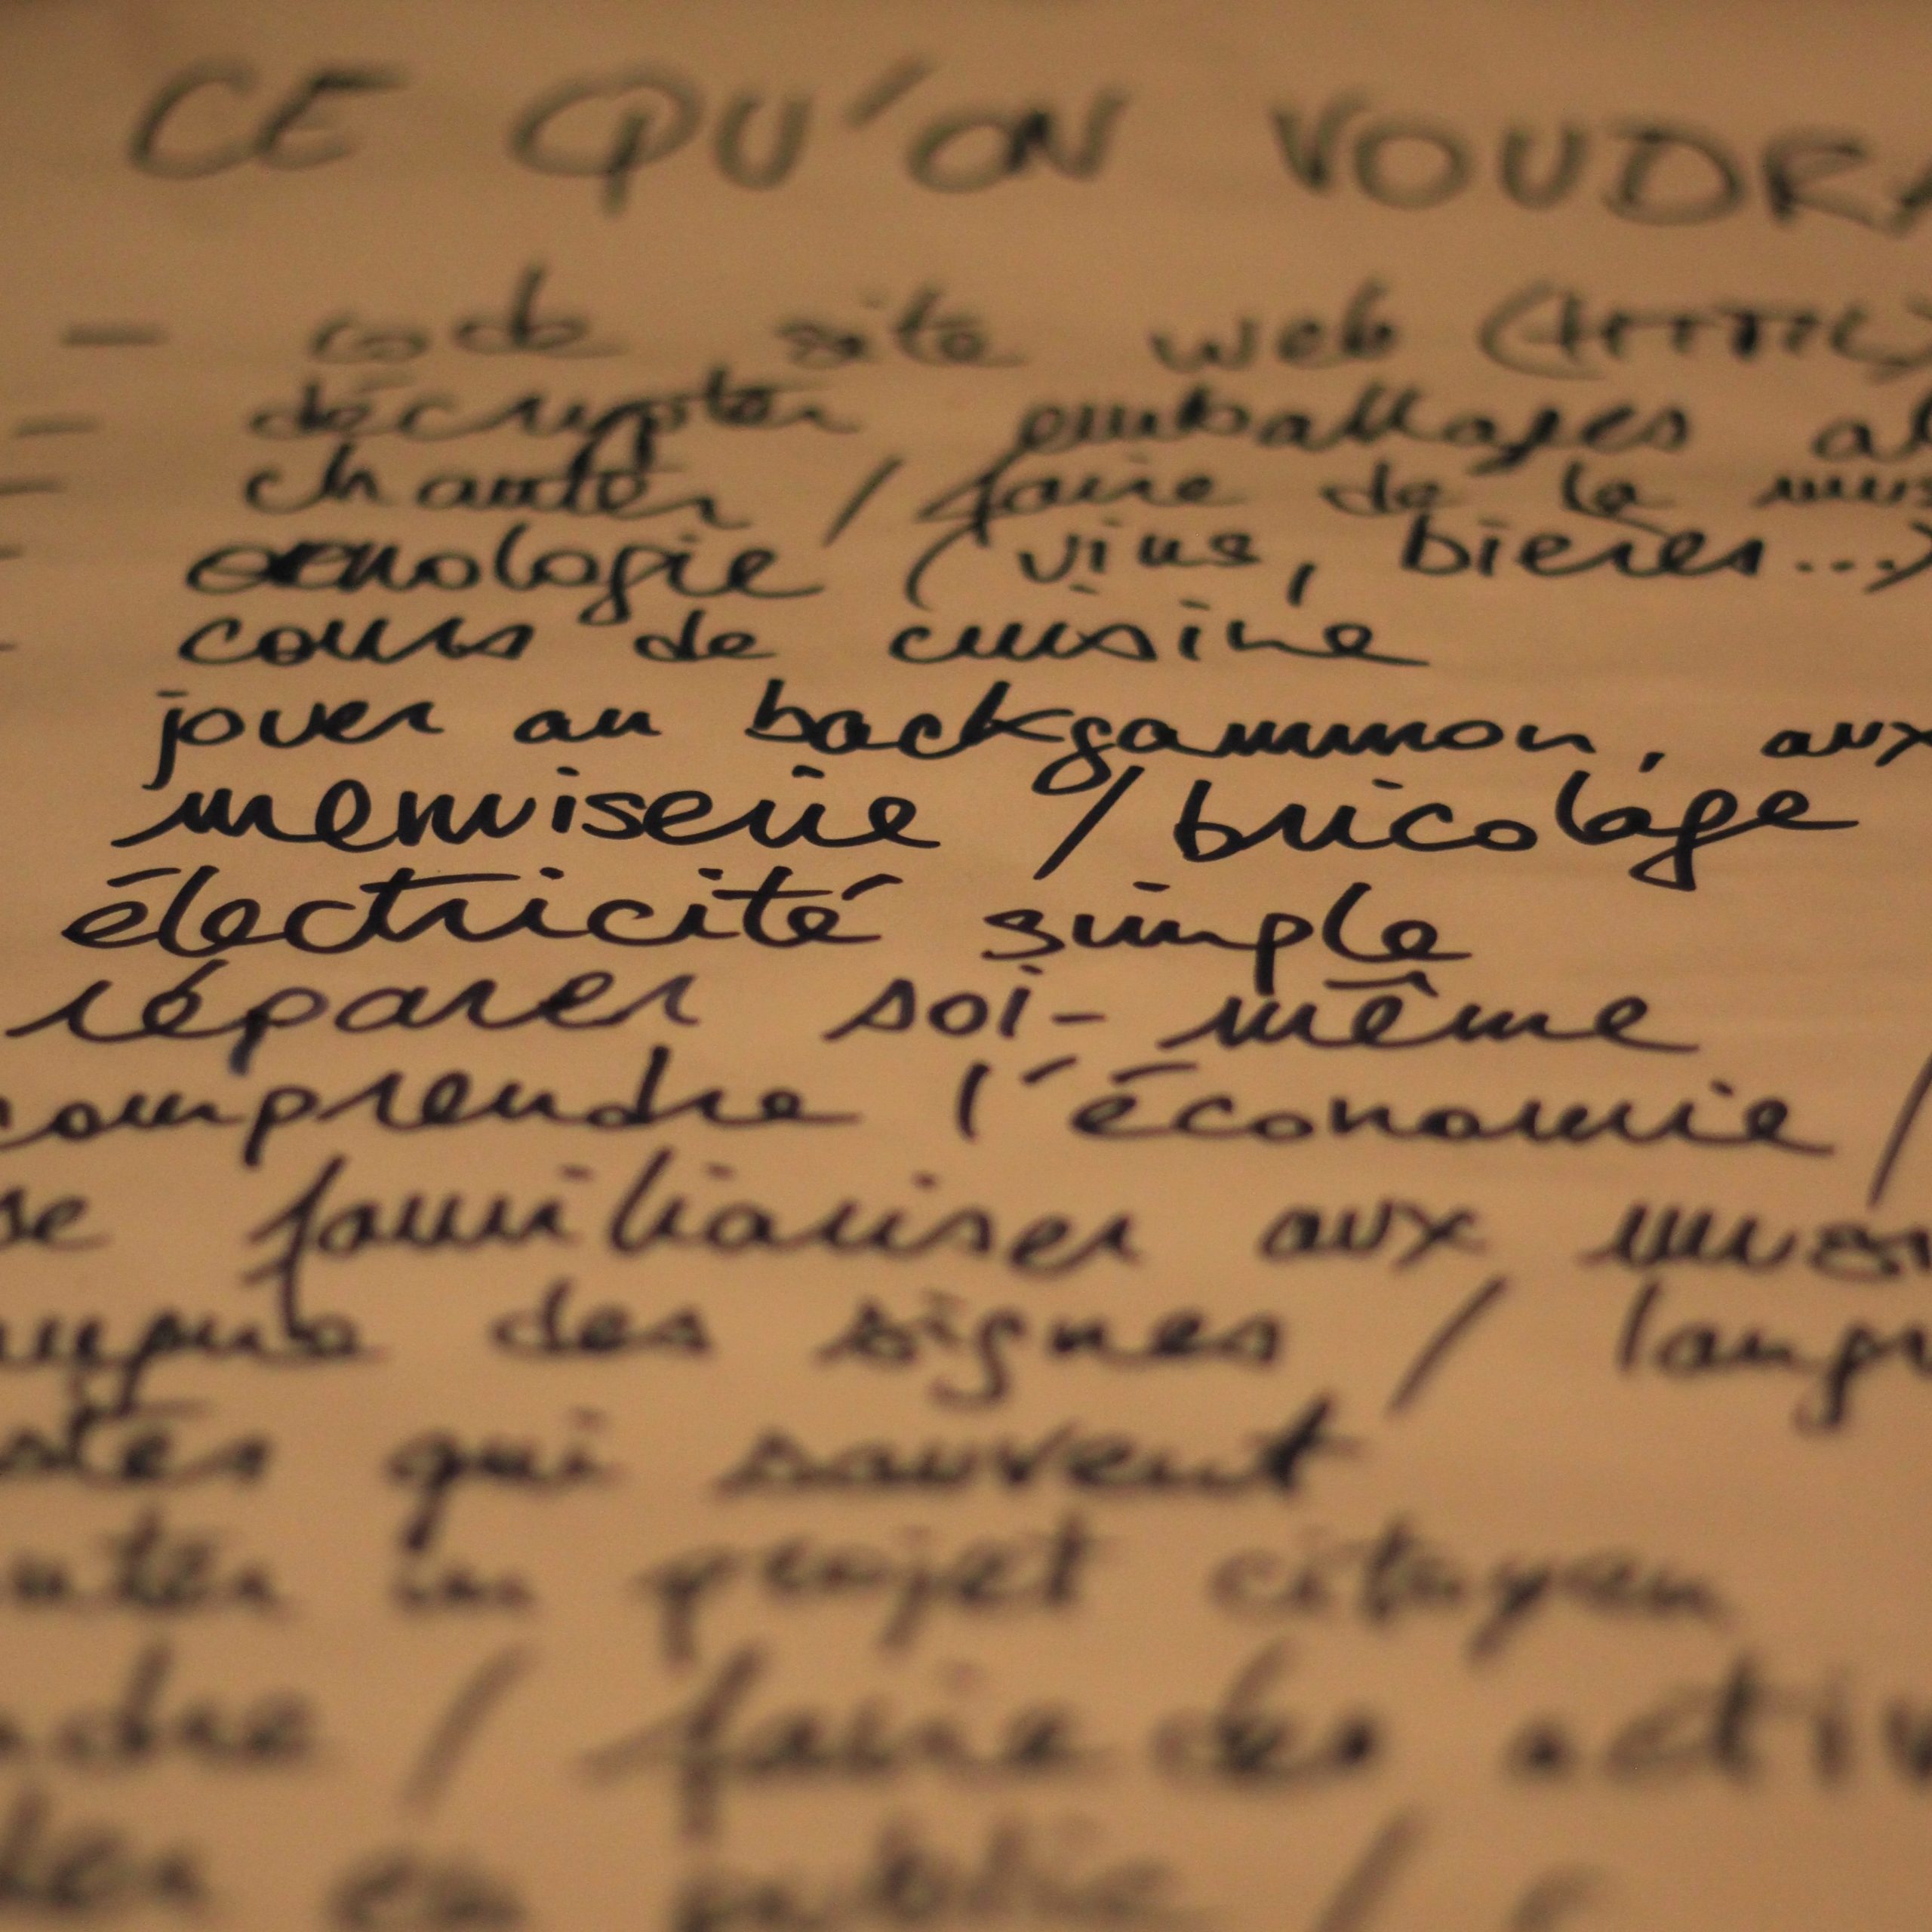 CE QU'ON VOUDRA
- code site web (HTML)
- décrypter emballages al
- chanter / faire de la mus
- œnologie (vins, bières...)
- cours de cuisine
jouer au backgammon, aux
menuiserie / bricolage
électricité simple
réparer soi-même
comprendre l'économie /
se familiariser aux musi
des signes / langu
stes qui sauvent
nter un projet citoyen
ndre / faire des activ
ler en public /